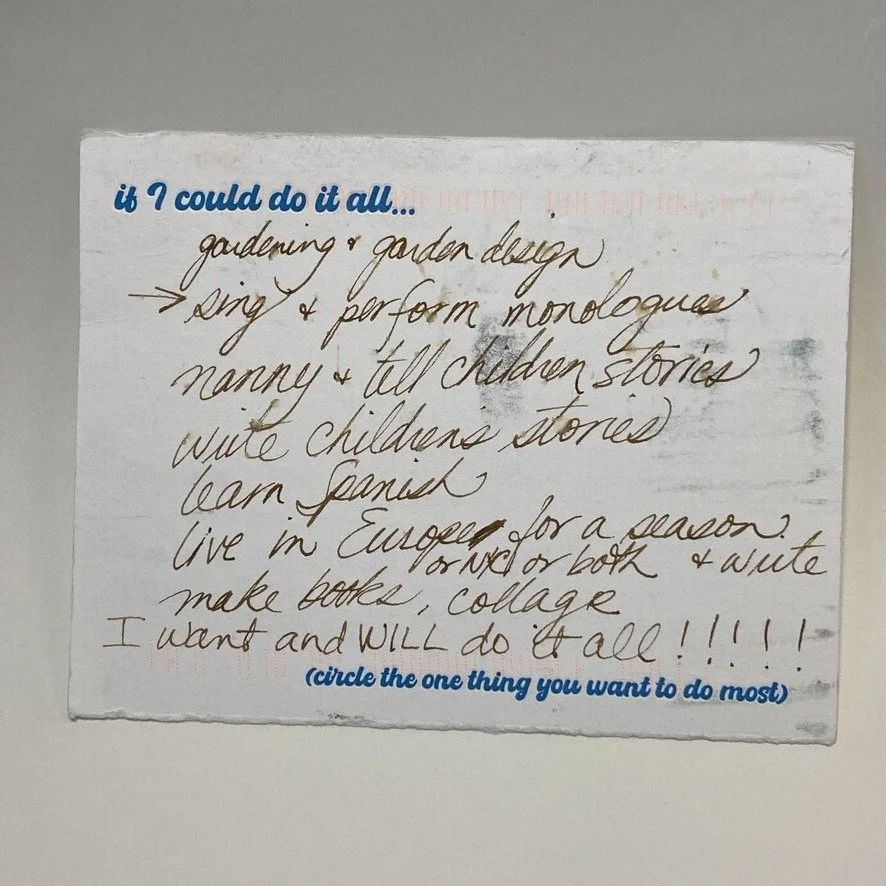 if I could do it all...
gardening & garden design
→ sing & perform monologues
nanny & tell children stories
write childrens stories
learn Spanish
live in Europe for a season
or NYC or both & write
make books, collage
I want and WILL do it all!!!!!
(circle the one thing you want to do most)